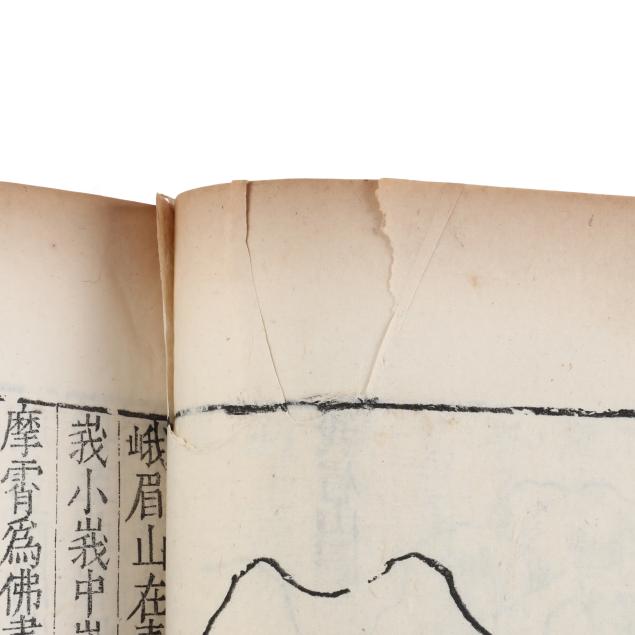 峨眉山在
峩小峩中
摩霄爲佛